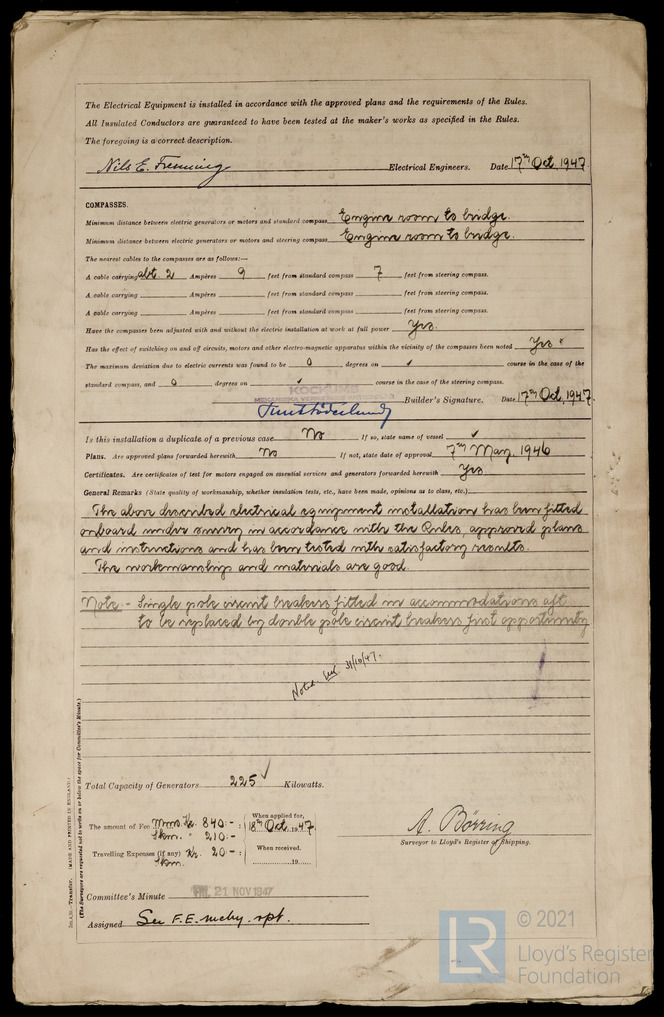 The Electrical Equipment is installed in accordance with the approved plans and the requirements of the Rules.
All Insulated Conductors are guaranteed to have been tested at the maker's works as specified in the Rules.
The foregoing is a correct description.
Nils E. Electrical Engineers. Date 17th Oct, 1947.
COMPASSES.
Minimum distance between electric generators or motors and standard compass Engine room to bridge.
Minimum distance between electric generators or motors and steering compass Engine room to bridge.
The nearest cables to the compasses are as follows:—
A cable carrying abt. 2 Ampères 9 feet from standard compass 7 feet from steering compass.
A cable carrying Ampères feet from standard compass feet from steering compass.
A cable carrying Ampères feet from standard compass feet from steering compass.
Have the compasses been adjusted with and without the electric installation at work at full power Yes.
Has the effect of switching on and off circuits, motors and other electro-magnetic apparatus within the vicinity of the compasses been noted Yes
The maximum deviation due to electric currents was found to be 0 degrees on ✓ course in the case of the
standard compass, and 0 degrees on ✓ course in the case of the steering compass.
KOCKUMS
Builder's Signature. Date 17th Oct, 1947.
Is this installation a duplicate of a previous case No If so, state name of vessel ✓
Plans. Are approved plans forwarded herewith No If not, state date of approval 7th May, 1946
Certificates. Are certificates of test for motors engaged on essential services and generators forwarded herewith Yes
General Remarks (State quality of workmanship, whether insulation tests, etc., have been made, opinions as to class, etc.)
The above described electrical equipment installation has been fitted
onboard under survey in accordance with the Rules, approved plans
and instructions and has been tested with satisfactory results.
The workmanship and materials are good.
Note:- Single pole circuit breakers fitted in accommodations aft
to be replaced by double pole circuit breakers first opportunity
Noted 31/10/47.
Total Capacity of Generators 225 ✓ Kilowatts.
The amount of Fee Kr. 840:-
210:-
When applied for, 18th Oct, 1947
Travelling Expenses (if any) Kr. 20:-
When received, 19
A. Börring
Surveyor to Lloyd's Register of Shipping.
Committee's Minute FRI. 21 NOV 1947
Assigned See F.E. mchy. rpt.
Transfer. (MADE AND PRINTED IN ENGLAND.)
(The Surveyors are requested not to write on or below the space for Committee's Minute.)
LR
© 2021
Lloyd's Register
Foundation